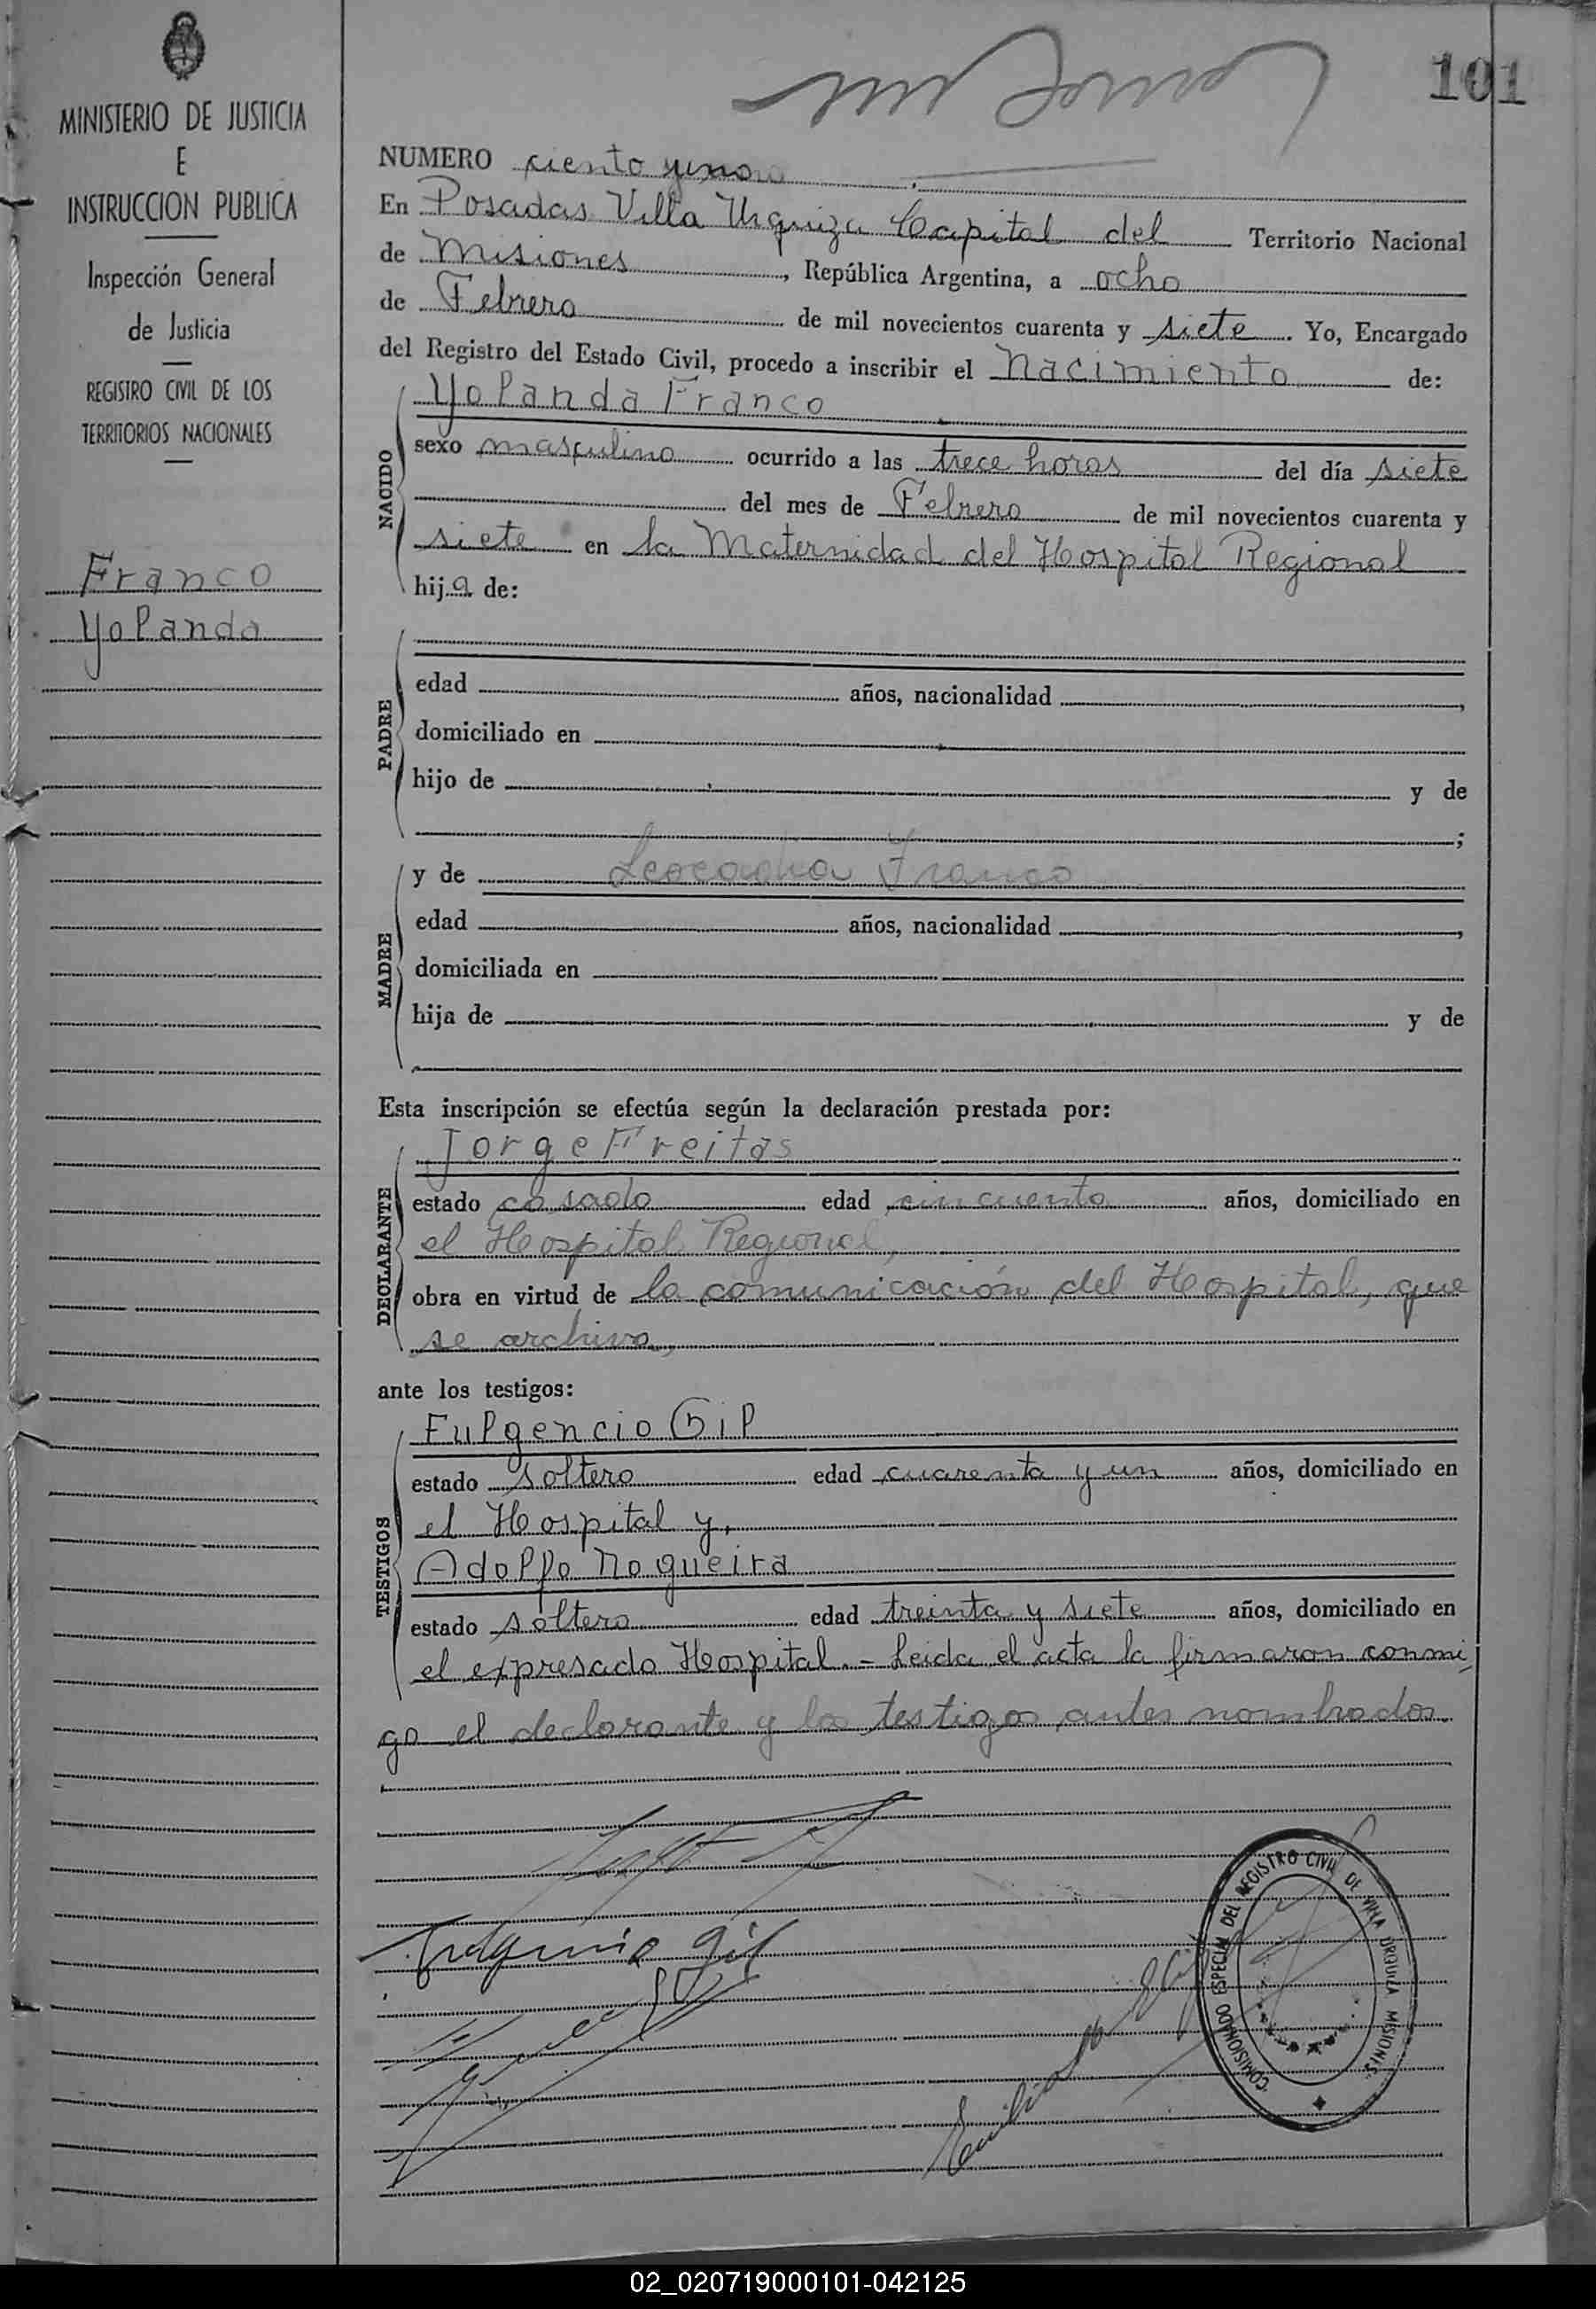 101
MINISTERIO DE JUSTICIA
E
INSTRUCCION PUBLICA
Inspección General
de Justicia
REGISTRO CIVIL DE LOS
TERRITORIOS NACIONALES
Franco
Yolanda
NUMERO ciento y uno
En Posadas Villa Urquiza Capital del Territorio Nacional
de Misiones, República Argentina, a ocho
de Febrero de mil novecientos cuarenta y siete. Yo, Encargado
del Registro del Estado Civil, procedo a inscribir el Nacimiento de:
NACIDO
Yolanda Franco
sexo masculino ocurrido a las trece horas del día siete
del mes de Febrero de mil novecientos cuarenta y
siete en la Maternidad del Hospital Regional
hija de:
PADRE
edad años, nacionalidad ,
domiciliado en
hijo de y de
;
MADRE
y de Leocadia Franco
edad años, nacionalidad ,
domiciliada en
hija de y de
Esta inscripción se efectúa según la declaración prestada por:
DECLARANTE
Jorge Freitas
estado casado edad cincuenta años, domiciliado en
el Hospital Regional,
obra en virtud de la comunicación del Hospital, que
se archiva,
ante los testigos:
TESTIGOS
Fulgencio Gil
estado soltero edad cuarenta y un años, domiciliado en
el Hospital y,
Adolfo Nogueira
estado soltero edad treinta y siete años, domiciliado en
el expresado Hospital.- Leida el acta la firmaron conmi
go el declarante y los testigos antes nombrados.
Fulgencio Gil
Emilio
COMISIONADO ESPECIAL DEL REGISTRO CIVIL DE VILLA URQUIZA MISIONES
02_020719000101-042125